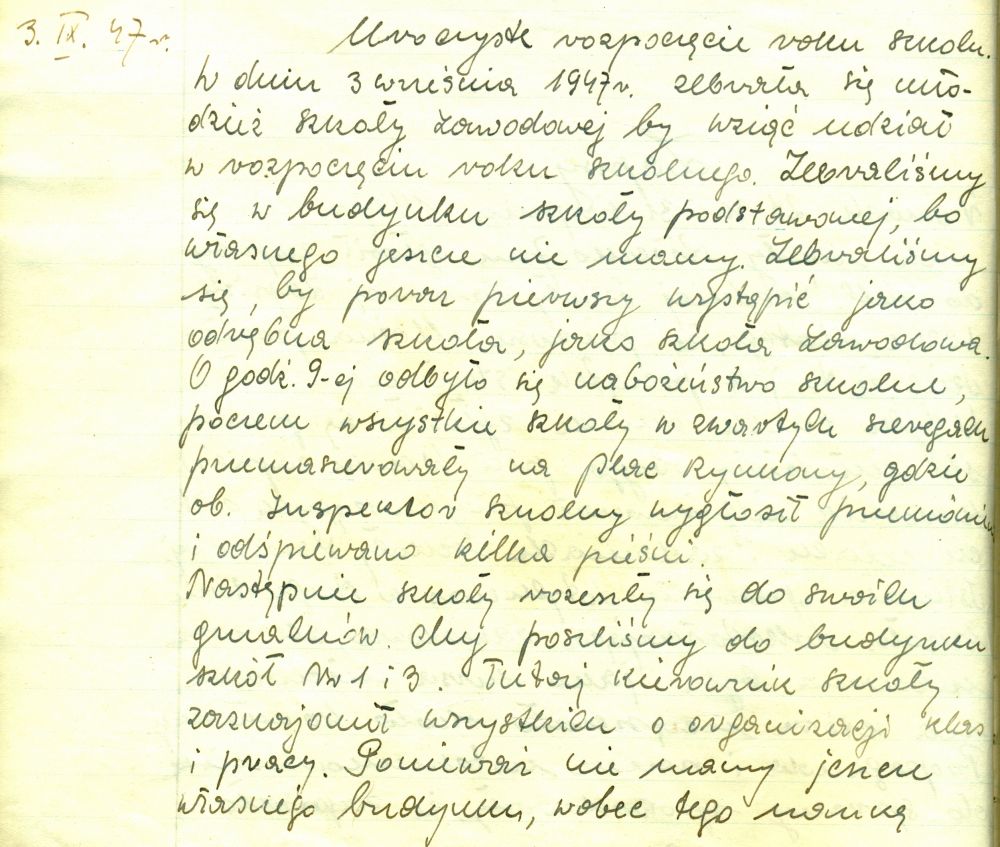 3. IX. 47 r.
Uroczyste rozpoczęcie roku szkoln.
W dniu 3 września 1947 r. zebrała się mło-
dzież szkoły zawodowej by wziąć udział
w rozpoczęciu roku szkolnego. Zebraliśmy
się w budynku szkoły podstawowej, bo
własnego jeszcze nie mamy. Zebraliśmy
się, by poraz pierwszy wystąpić jako
odrębna szkoła, jako szkoła zawodowa.
O godz. 9-ej odbyło się nabożeństwo szkolne,
poczem wszystkie szkoły w zwartych szeregach
przemaszerowały na Plac Rynkowy, gdzie
ob. Inspektor szkolny wygłosił przemówienie
i odśpiewano kilka pieśni.
Następnie szkoły rozeszły się do swoich
gmachów. My poszliśmy do budynku
szkół Nr 1 i 3. Tutaj kierownik szkoły
zaznajomił wszystkich o organizacji klas
i pracy. Ponieważ nie mamy jeszcze
własnego budynku, wobec tego naukę